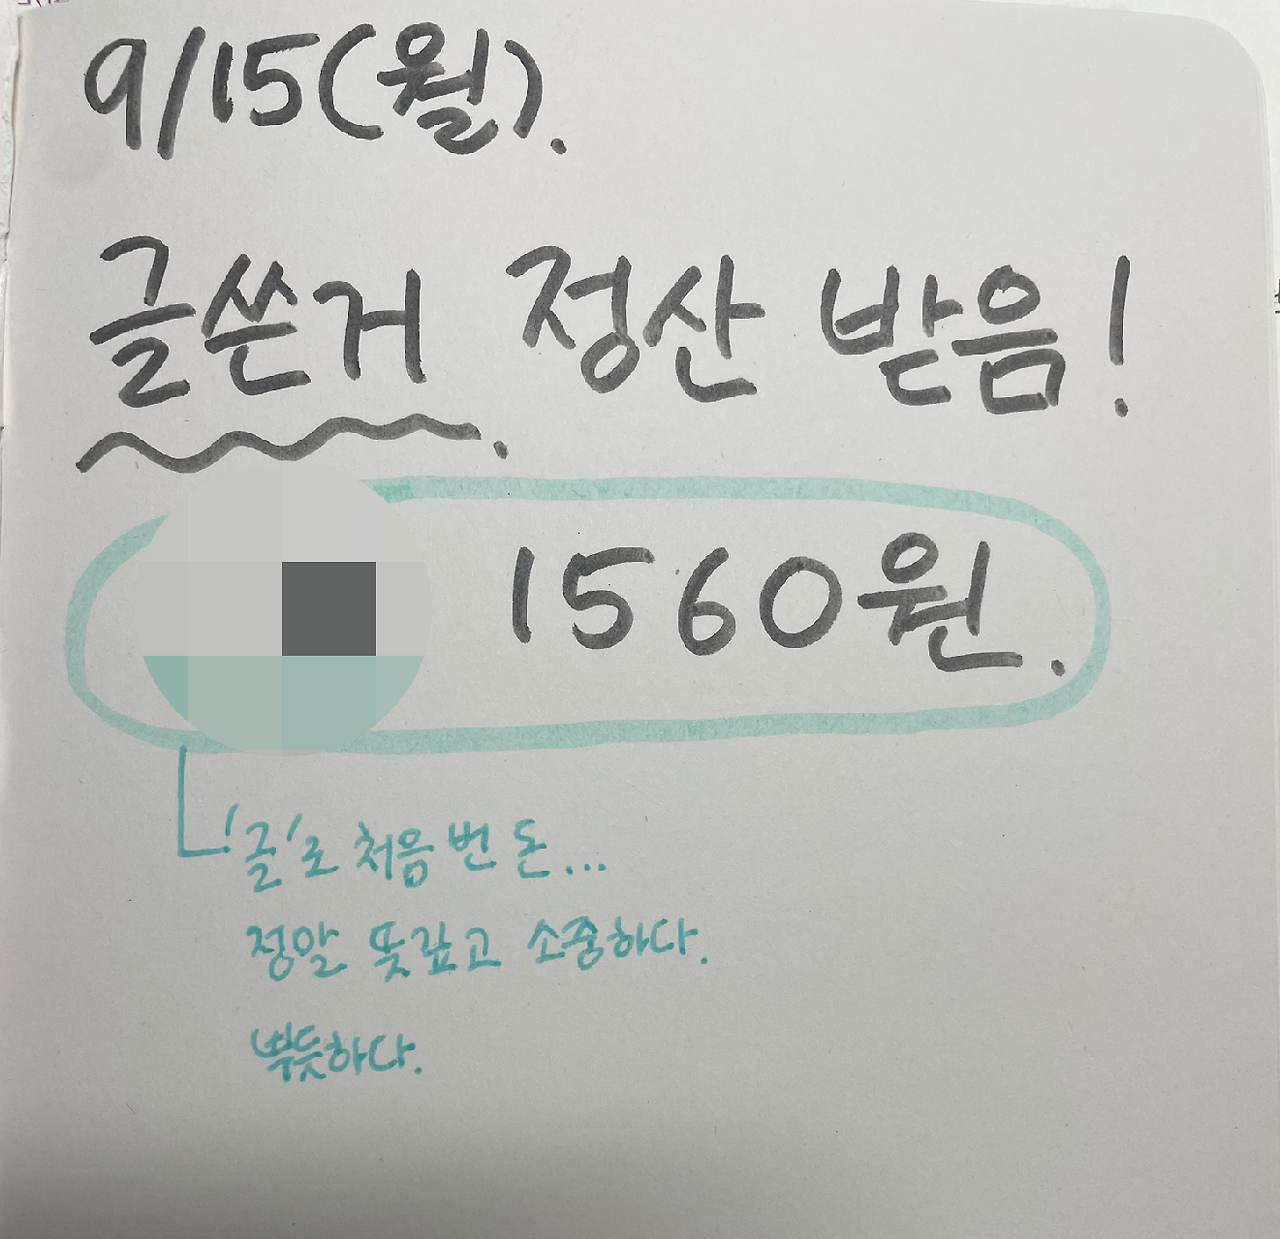 9/15(월).
글쓴거 정산 받음!
1560원.
'글'로 처음 번 돈...
정말 뜻깊고 소중하다.
뿌듯하다.